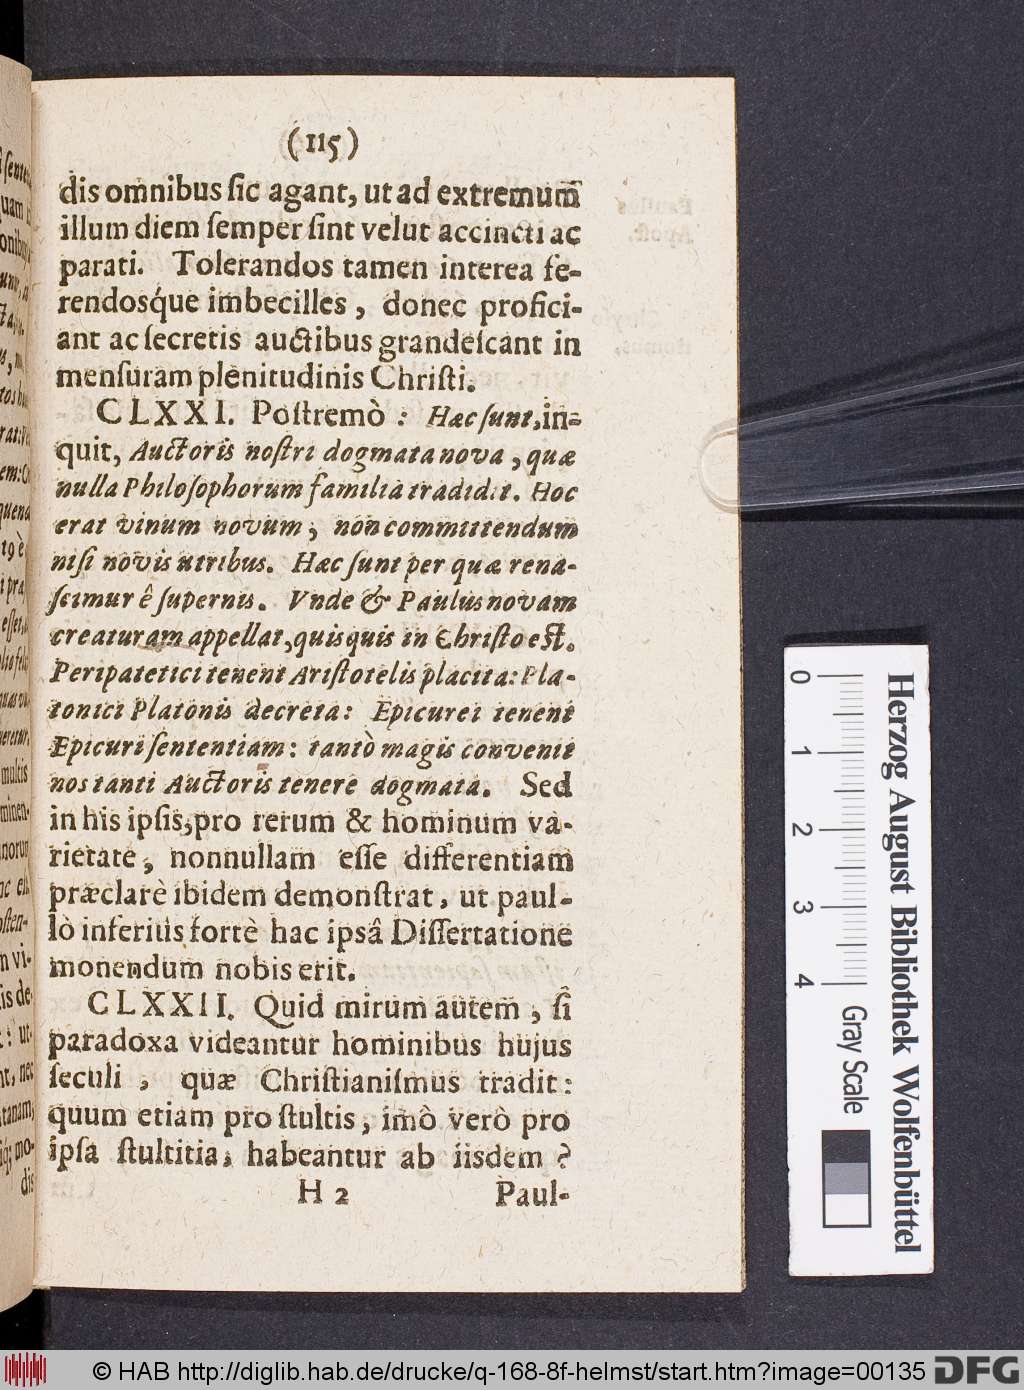 (115)
dis omnibus ſic agant, ut ad extremum
illum diem ſemper ſint velut accincti ac
parati. Tolerandos tamen interea fe-
rendosq́ue imbecilles, donec profici-
ant ac ſecretis auctibus grandeſcant in
menſuram plenitudinis Chriſti.
CLXXI. Poſtremò: Hæc ſunt, in-
quit, Auctoris noſtri dogmata nova, quæ
nulla Philoſophorum familia tradidit. Hoc
erat vinum novum, non committendum
niſi novis utribus. Hæc ſunt per quæ rena-
ſcimur ê ſupernis. Vnde & Paulus novam
creaturam appellat, quisquis in Chriſto eſt.
Peripatetici tenent Ariſtotelis placita: Pla-
tonici Platonis decreta: Epicurei tenent
Epicuri ſententiam: tantò magis convenit
nos tanti Auctoris tenere dogmata. Sed
in his ipſis, pro rerum & hominum va-
rietate, nonnullam eſſe differentiam
præclarè ibidem demonſtrat, ut paul-
lò inferiùs fortè hac ipsâ Diſſertatione
monendum nobis erit.
CLXXII. Quid mirum autem, ſi
paradoxa videantur hominibus hujus
ſeculi, quæ Chriſtianiſmus tradit:
quum etiam pro ſtultis, imò verò pro
ipſa ſtultitia, habeantur ab iisdem?
H 2 Paul-
0 1 2 3 4
Gray Scale
Herzog August Bibliothek Wolfenbüttel
© HAB http://diglib.hab.de/drucke/q-168-8f-helmst/start.htm?image=00135
DFG